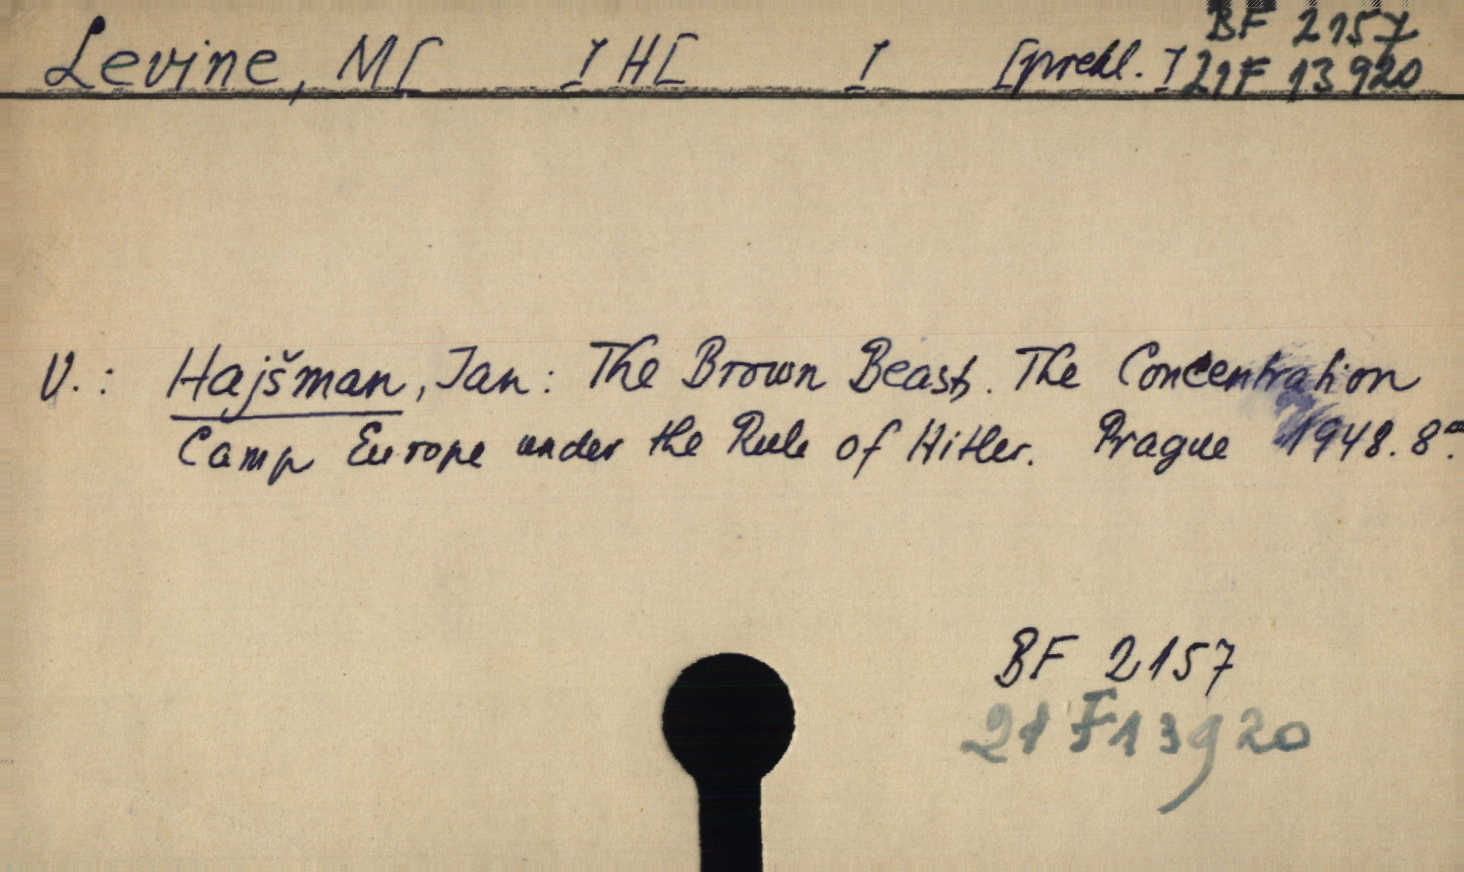 BF 2157
Levine, M[ ] H[ ] [překl.] 21F 13920
V.: Hajšman, Jan: The Brown Beast. The Concentration
Camp Europe under the Rule of Hitler. Prague 1948. 8°.
BF 2157
21 F 13920